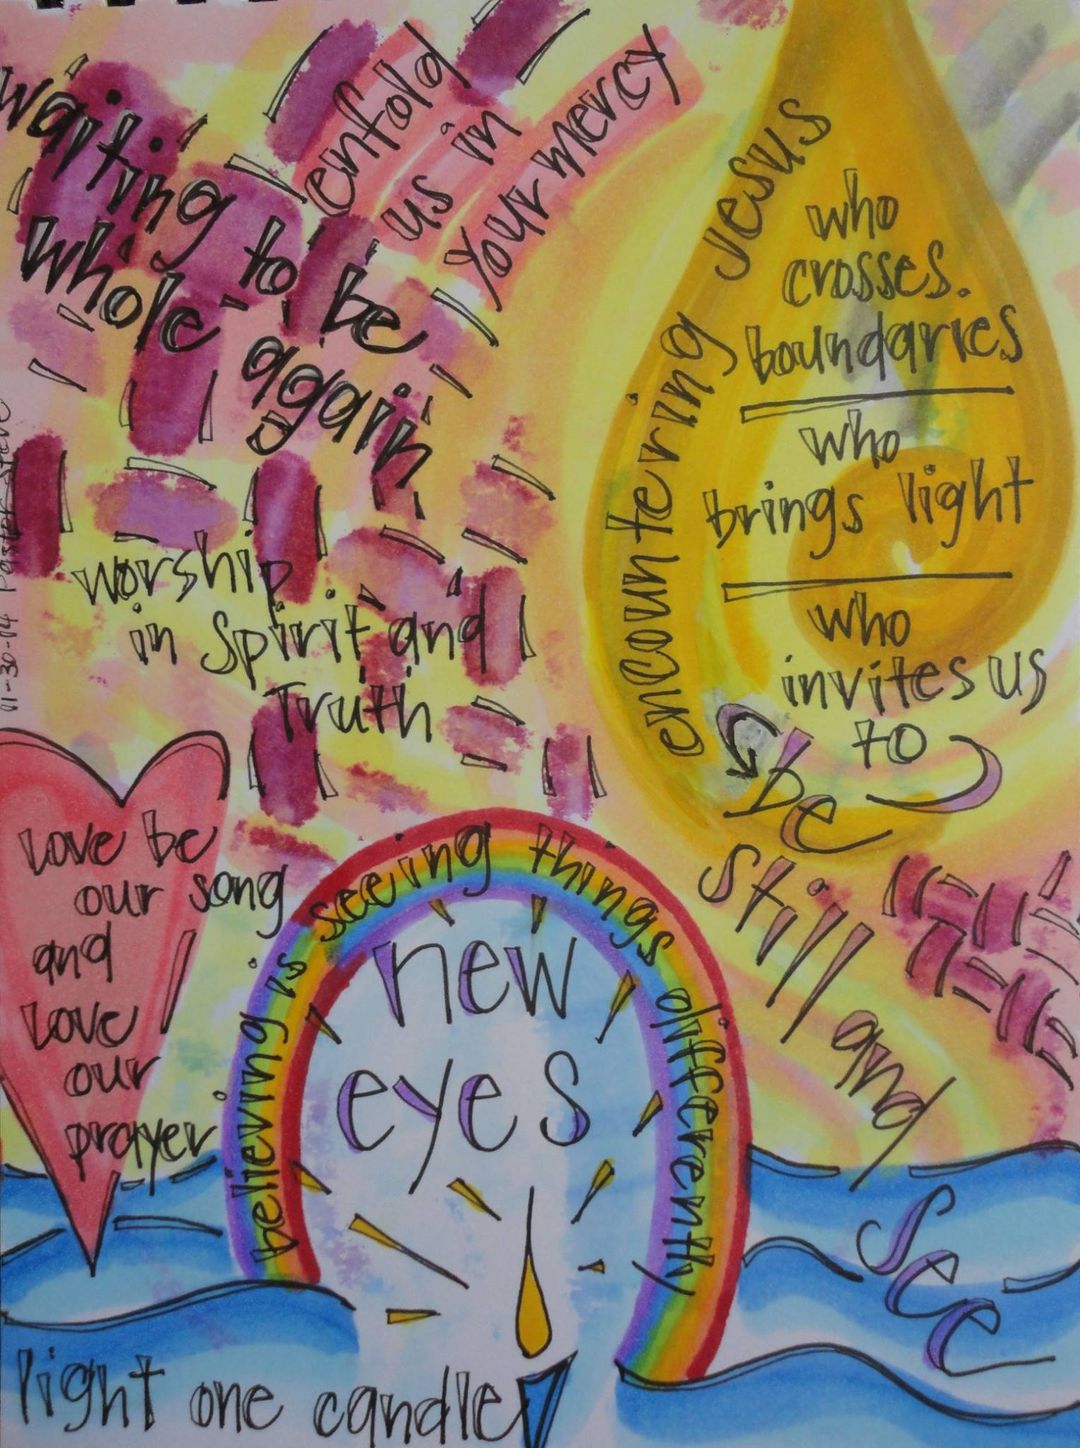 waiting to be
whole again
enfold
us in
your mercy
encountering Jesus
who
crosses.
boundaries
who
brings light
who
invites us
to
be
still and
see
worship
in Spirit and
Truth
11-30-14 Pastor Steve
love be
our song
and
love
our
prayer
believing is seeing things differently
new
eyes
light one candle